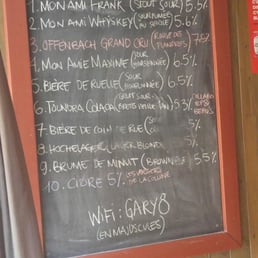 1. MON AMI FRANK (STOUT SOUR) 5.5%
2. MON AMI WHYSKEY (SOUR FUMÉE AU SEIGLE) 5.6%
3. OFFENBACH GRAND CRU (ROUGE DES FLANDRES) 7.6%
4. MON AMIE MAXIME (SOUR HOUBLONNÉE) 6.5%
5. BIÈRE DE RUELLE (SOUR HOUBLONNÉE) 6.5%
6. TOUNDRA COLADA (BRETT) 5.3% COLLABO
7. BIÈRE DE COIN DE RUE 5%
8. HOCHELAGER (LAGER BLONDE) 5%
9. BRUME DE MINUIT (BROWN ALE) 5.5%
10. CIDRE 5% LES VERGERS DE LA COLLINE
WiFi : GARY8
(EN MAJUSCULES)